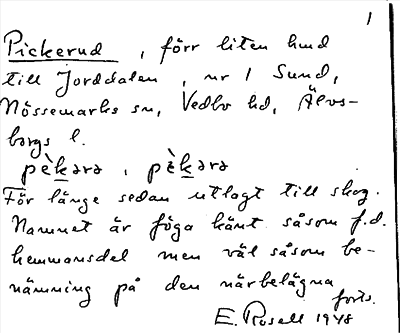 1
Pickerud, förr liten hmd
till Jorddalen, nr 1 Sund,
Nössemarks sn, Vedbo hd, Älvs-
borgs l.
pèkərə, pèkarə
För länge sedan utlagt till skog.
Namnet är föga känt såsom f.d.
hemmansdel men väl såsom be-
nämning på den närbelägna
forts.
E. Rosell 1948